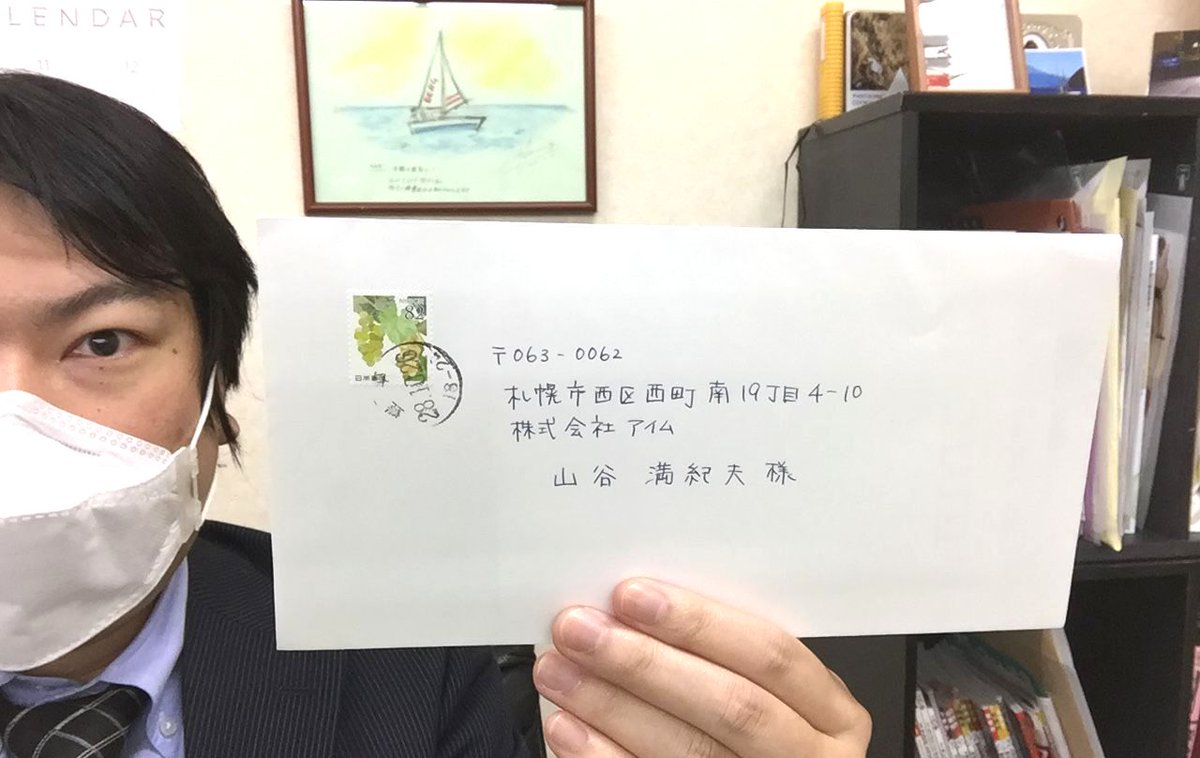 LENDAR
11 12
82
日本郵便
28
〒063-0062
札幌市西区西町南19丁目4-10
株式会社アイム
山谷 満紀夫 様